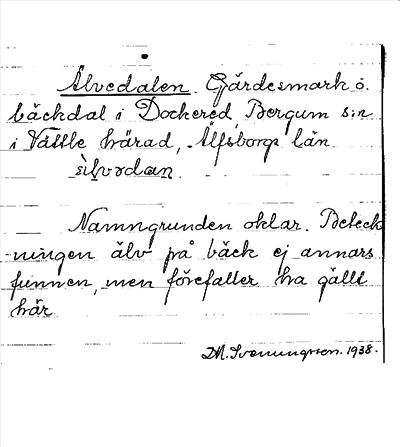 Älvedalen. Gärdesmark o.
bäckdal i Dockered, Bergum s:n
i Vättle härad, Älfsborgs län
Namngrunden oklar. Beteck
-ningen älv på bäck ej annars
funnen, men förefaller ha gällt
här
D.M. Svenningsson. 1938.